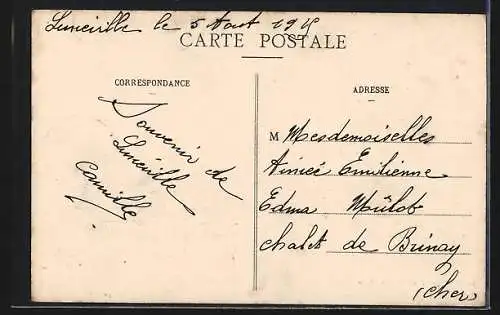 Lunéville le 5 Aout
CARTE POSTALE
CORRESPONDANCE
Souvenir de
Lunéville
Camille
ADRESSE
M Mesdemoiselles
Aimée Emilienne
Edma
chalet de Brinay
(Cher)